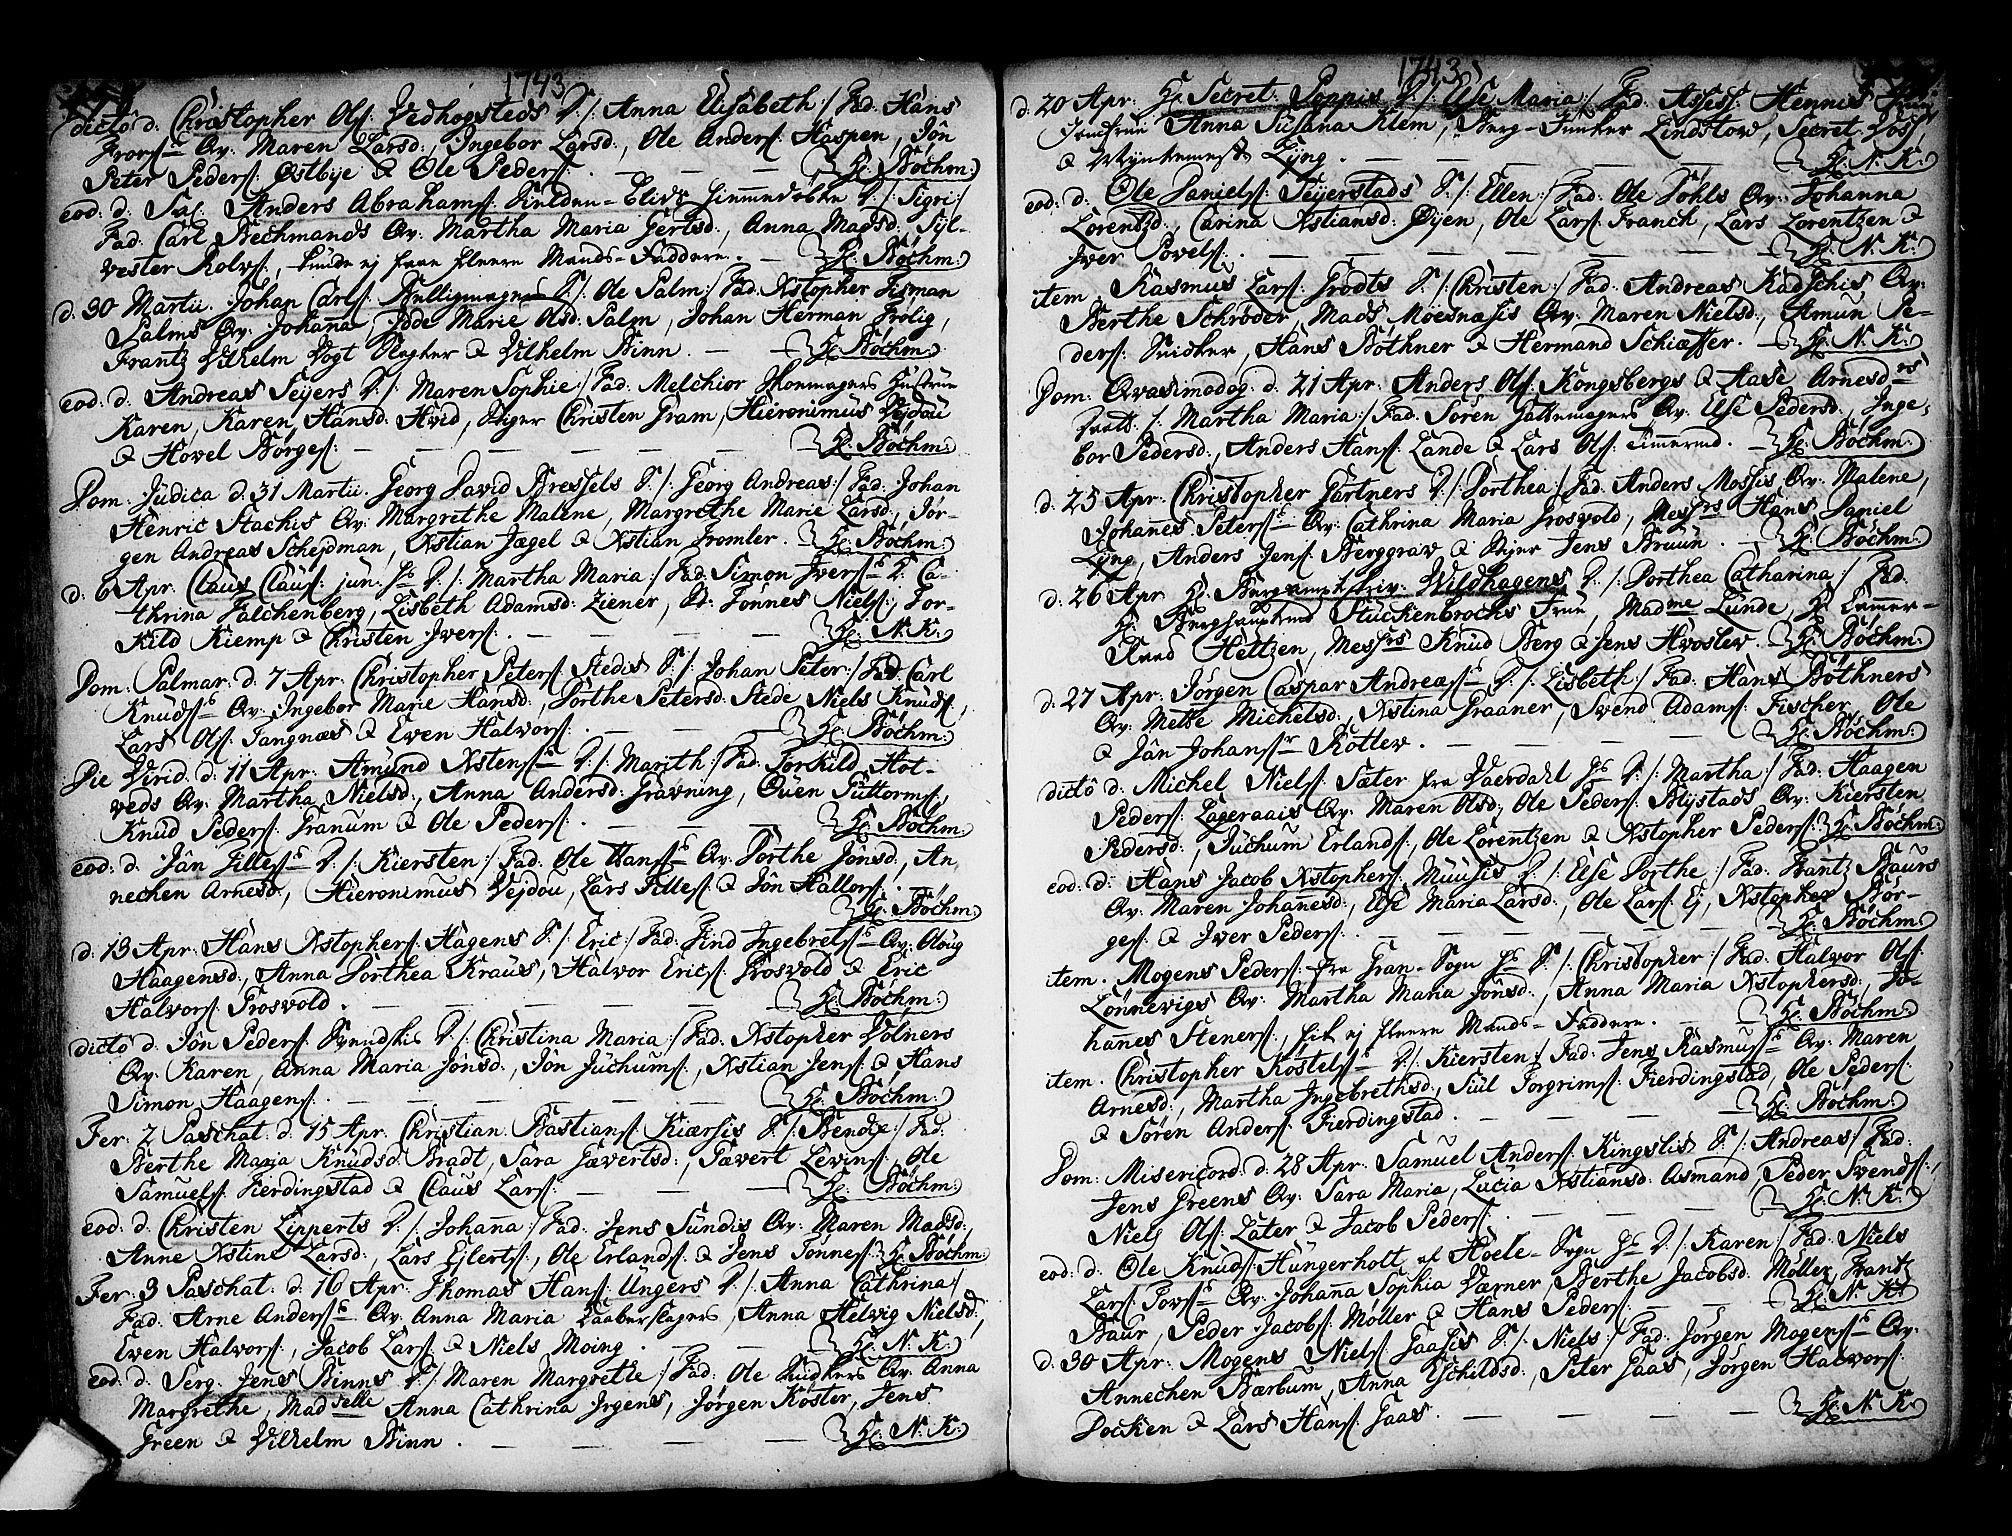 1743
dicto d. Christopher Ols: Vedhogsteds D: /: Anna Elisabeth :/ Fad. Hans
Frors: Qv: Maren Larsd:, Ingebor Larsd:, Ole Anders: Haspen, Jon
Peter Peders: Østbye & Ole Peders:. H: Bøchm:
eod: d: Anders Abrahams: D: /: Sigri :/
Fad: Carl Bechmands Qv: Martha Maria Gertsd:, Anna Madsd: Syl-
vester Rolvs:, kunde ej faae fleere Mands-Faddere. H: Bøchm:
d. 30 Martii. Johan Carls: S: /: Ole Palm :/ Fad: Xstopher Tisman
Palms Qv: Johanna, Jode Marie Olsd: Palm, Johan Herman Frolig,
Frantz Vilhelm Vogt & Vilhelm Binn. H: Bøchm:
eod: d. Andreas Seyers D: /: Maren Sophie :/ Fad. Melchior Hustrue
Karen, Karen Hansd: Hvid, Christen Gram, Hieronimus Vejdou
& Hovel Børges: H: Bøchm:
Dom: Judica d. 31 Martii. Georg David Bressels S: /: Georg Andreas :/ Fad. Johan
Henric Stachis Qv: Margrethe Malene, Margrethe Marie Larsd:, Jør-
gen Andreas Schejdman, Xstian Jægel & Xstian Fromler. H: Bøchm:
d. 6 Apr. Claus Claus: jun: D: /: Martha Maria :/ Fad: Simon Ivers: D: Ca-
thrina Falchenberg, Lisbeth Adamsd: Ziener, Tønnes Niels:, Tor-
Kild Kiemp & Christen Ivers:. H: N: K:
Dom: Palmar: d. 7 Apr: Christopher Peters: Stedis S: /: Johan Peter :/ Fad: Carl
Knuds: Qv: Ingebor Marie Hansd:, Dorthe Petersd: Stede Niels Knuds:,
Lars Ols: Tangnæs & Even Halvors:. H: Bøchm:
Die Virid. d. 11 Apr: Amund Xstens: D: /: Marith :/ Fad: Torkild Hot-
veds Qv: Martha Nielsd:, Anna Andersd: Gravning, Ouen Guttorms:,
Knud Peders: Granum & Ole Peders:. H: Bøchm:
eod: d. Jan Tilles: D: /: Kiersten :/ Fad: Ole Hans: Qv: Dorthe Jonsd:, An-
nechen Arnesd:, Hieronimus Vejdou, Lars Tilles: & Jon Hallors:.
H: Bøchm:
d. 13 Apr: Hans Xstophers: Hagens S: /: Eric :/ Fad: Find Ingebrets: Qv: Oloug
Haagensd:, Anna Dorthea Kraus, Halvor Erics: Trosvold & Eric
Halvors: Trosvold. H: Bøchm:
dicto d. Jon Peders: D: /: Christina Maria :/ Fad: Xstopher Volners
Qv: Karen, Anna Maria Jonsd:, Jon Juchums:, Xstian Jens: & Hans
Simon Haagens:. H: Bøchm:
Fer: 2 Paschat: d. 15 Apr: Christian Bastians: Kiærsis S: /: Bendix :/ Fad:
Berthe Maria Knudsd: Bradt, Sara Gævertsd:, Gævert Levins:, Ole
Samuels: Fierdingstad & Claus Lars: H: Bøchm:
eod: d. Christen Lipperts D: /: Johanna :/ Fad: Jens Sundis Qv: Maren Madsd:,
Anne Xstine Larsd:, Lars Ejlerts:, Ole Erlands: & Jens Tonnes: H: Bøchm:
Fer: 3 Paschat: d. 16 Apr. Thomas Hans: Ungers D: /: Anna Cathrina :/
Fad: Arne Anders: Qv: Anna Maria, Anna Helvig Nielsd:,
Even Halvors:, Jacob Lars: & Niels Moing. H: N: K:
eod: d. Serg. Jens Binns D: /: Maren Margrethe :/ Fad: Ole Qv: Anna
Margrethe, Madselle Anna Cathrina Irgens, Jørgen Koster, Jens
Green & Vilhelm Binn. H: N: K:
1743
d. 20 Apr: H: Secret: Poppis D: /: Else Maria :/ Fad: Assess: Hennis Frue,
Jomfrue Anna Susana Klem, Berg-Junker Lindstow, Secret. Voss,
& Myntemest: Lyng. H: N: K:
eod: d. Ole Daniels: Seyerstads D: /: Ellen :/ Fad: Ole Pohls Qv: Johanna
Lorentzd:, Carina Xstiansd: Øyen, Ole Lars: Franck, Lars Lorentzen &
Iver Povels:. H: N: K:
item Rasmus Lars: Grodts S: /: Christen :/ Fad: Andreas Kadschis Qv:
Berthe Schrøder, Mads Moesnæsis Qv: Maren Nielsd:, Amun Pe-
ders: Snicker, Hans Bøthner & Hermand Schiæffer. H: N: K:
Dom: Qvasimodog: d. 21 Apr: Anders Ols: Kongsbergs & Aase Arnesd:
/: Martha Maria :/ Fad: Søren Qv: Else Pedersd:, Inge-
bor Pedersd:, Anders Hans: Lande & Lars Ols: Timmermd. H: Bøchm:
d. 25 Apr: Christopher Gartners D: /: Dorthea :/ Fad: Anders Mossis Qv: Malene,
Johannes Peters: Qv: Cathrina Maria Grosvold, Messrs Hans Daniel
Lyng, Anders Jens: Berggrav & Jens Bruun. H: Bøchm:
d. 26 Apr. H: Bergamptskriv: Wildhagens D: /: Dorthea Catharina :/ Fad.
H: Berghauptmd Stuckenbrochs Frue, Madme Lunde, H: Cammer-
Raad Heltzen, Messrs Knud Berg & Jens Hvoslev. H: Bøchm:
d. 27 Apr. Jørgen Caspar Andreas: D: /: Lisbeth :/ Fad: Hans Bøthners
Qv: Mette Michelsd:, Xstina Graaner, Svend Adams: Fischer, Ole
& Jan Johans: Kotlev. H: Bøchm:
dicto d. Michel Niels: Sæter fra Vaerdahl D: /: Martha :/ Fad: Haagen
Peders: Lageraais Qv: Maren Olsd:, Ole Peders: Blystads Qv: Kiersten
Pedersd:, Juchum Erlands:, Ole Lorentzen & Xstopher Peders: H: Bøchm:
eod: d: Hans Jacob Xstophers: Muusis D: /: Else Dorthe :/ Fad: Frantz Baurs
Qv: Maren Johannesd:, Else Maria Larsd:, Ole Lars: Ej, Xstopher Bør-
ges: & Iver Peders:. H: Bøchm:
item. Mogens Peders: fra Gran-Sogn S: /: Christopher :/ Fad: Halvor Ols:
Lønnevigs Qv: Martha Maria Jonsd:, Anna Maria Xstophersd:, Jo-
hannes Steners:, fik ej fleere Mands-Faddere. H: Bøchm:
item. Christopher Kostels: D: /: Kiersten :/ Fad: Jens Rasmus: Qv: Maren
Arnesd:, Martha Ingebrethsd:, Siul Torgrims: Fierdingstad, Ole Peders:
& Søren Anders: Fierdingstad. H: Bøchm:
Dom: Misericord: d. 28 Apr: Samuel Anders: Kingslis S: /: Andreas :/ Fad:
Jens Greens Qv: Sara Maria, Lucia Xstiansd: Asmand, Peder Svends:,
Niels Ols: Later & Jacob Peders:. H: N: K:
eod: d. Ole Knuds: Hungerholt af Hoele-Sogn D: /: Karen :/ Fad: Niels
Lars: Tovs: Qv: Johanna Sophia Værner, Berthe Jacobsd: Møller, Frantz
Baur, Peder Jacobs: Møller & Hans Peders:. H: N: K:
d. 30 Apr: Mogens Niels: Gaasis S: /: Niels :/ Fad: Jørgen Mogens: Qv:
Annechen Bærbum, Anna Eschildsd:, Peter Gaas, Jørgen Halvors:
Docken & Lars Hans: Gaas. H: N: K: